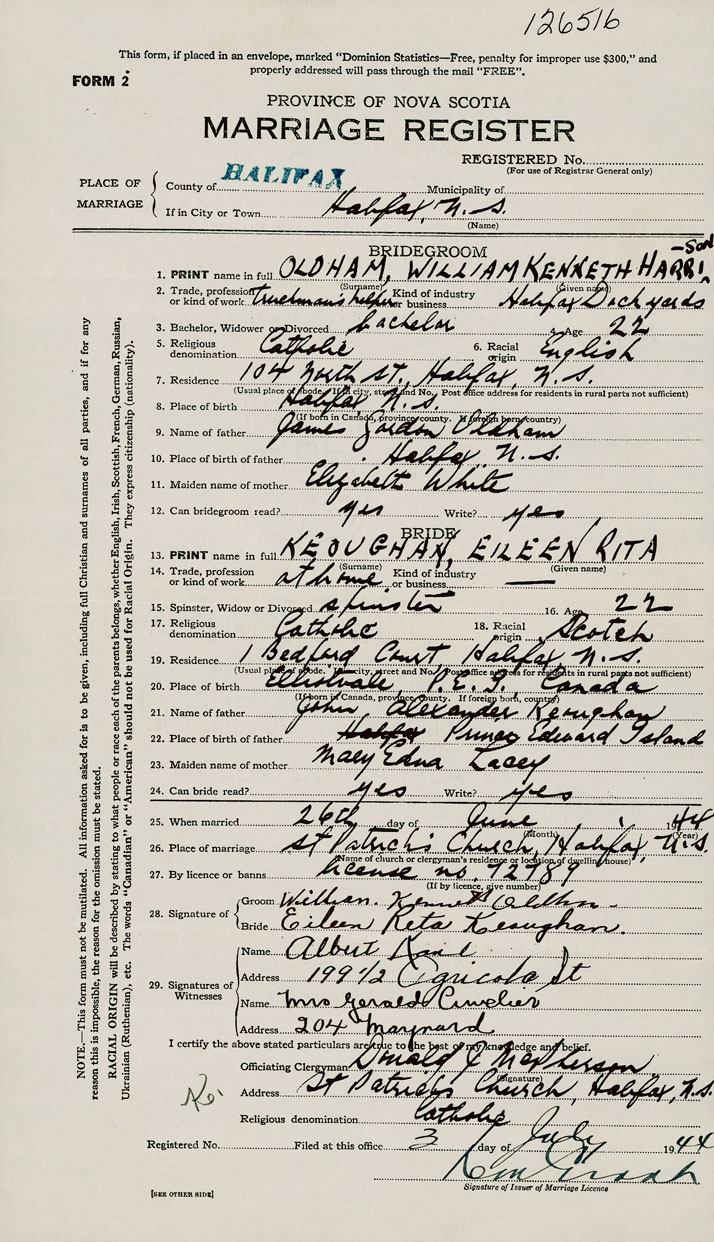 126516
This form, if placed in an envelope, marked "Dominion Statistics—Free, penalty for improper use $300," and
properly addressed will pass through the mail "FREE".
FORM 2
PROVINCE OF NOVA SCOTIA
MARRIAGE REGISTER
REGISTERED No.
(For use of Registrar General only)
PLACE OF MARRIAGE
County of HALIFAX Municipality of
If in City or Town Halifax, N.S.
(Name)
BRIDEGROOM
1. PRINT name in full OLDHAM, WILLIAM KENNETH HARRI-SON
(Surname) (Given name)
2. Trade, profession or kind of work helper Kind of industry or business Halifax Dockyards
3. Bachelor, Widower or Divorced bachelor 4. Age 22
5. Religious denomination Catholic 6. Racial origin English
7. Residence 104 North St, Halifax, N.S.
(Usual place of abode. If in city, street and No. Post office address for residents in rural parts not sufficient)
8. Place of birth Halifax N.S.
(If born in Canada, province, county. If foreign born, country)
9. Name of father James Gordon Oldham
10. Place of birth of father Halifax, N.S.
11. Maiden name of mother Elizabeth White
12. Can bridegroom read? yes Write? yes
BRIDE
13. PRINT name in full KEOUGHAN, EILEEN RITA
(Surname) (Given name)
14. Trade, profession or kind of work at home Kind of industry or business —
15. Spinster, Widow or Divorced spinster 16. Age 22
17. Religious denomination Catholic 18. Racial origin Scotch
19. Residence 1 Bedford Court Halifax N.S.
(Usual place of abode. If in city, street and No. Post office address for residents in rural parts not sufficient)
20. Place of birth P.E.I. Canada
(If born in Canada, province, county. If foreign born, country)
21. Name of father John Alexander Keoughan
22. Place of birth of father Halifax Prince Edward Island
23. Maiden name of mother Mary Edna Lacey
24. Can bride read? yes Write? yes
25. When married 26th day of June 1944
(Month) (Year)
26. Place of marriage St Patrick's Church, Halifax, N.S.
(Name of church or clergyman's residence or location of dwelling house)
27. By licence or banns license no. 72789
(If by licence, give number)
28. Signature of
Groom William Kenneth Oldham
Bride Eileen Rita Keoughan.
29. Signatures of Witnesses
Name Albert
Address 199 1/2 Agricola St
Name Mrs Gerald
Address 204 Maynard
I certify the above stated particulars are true to the best of my knowledge and belief.
Officiating Clergyman Donald
(Signature)
Address St Patrick's Church, Halifax, N.S.
Religious denomination Catholic
Registered No. Filed at this office 3 day of July 1944
Signature of Issuer of Marriage Licence
[SEE OTHER SIDE]
NOTE.—This form must not be mutilated. All information asked for is to be given, including full Christian and surnames of all parties, and if for any
reason this is impossible, the reason for the omission must be stated.
RACIAL ORIGIN will be described by stating to what people or race each of the parents belongs, whether English, Irish, Scottish, French, German, Russian,
Ukrainian (Ruthenian), etc. The words "Canadian" or "American" should not be used for Racial Origin. They express citizenship (nationality).